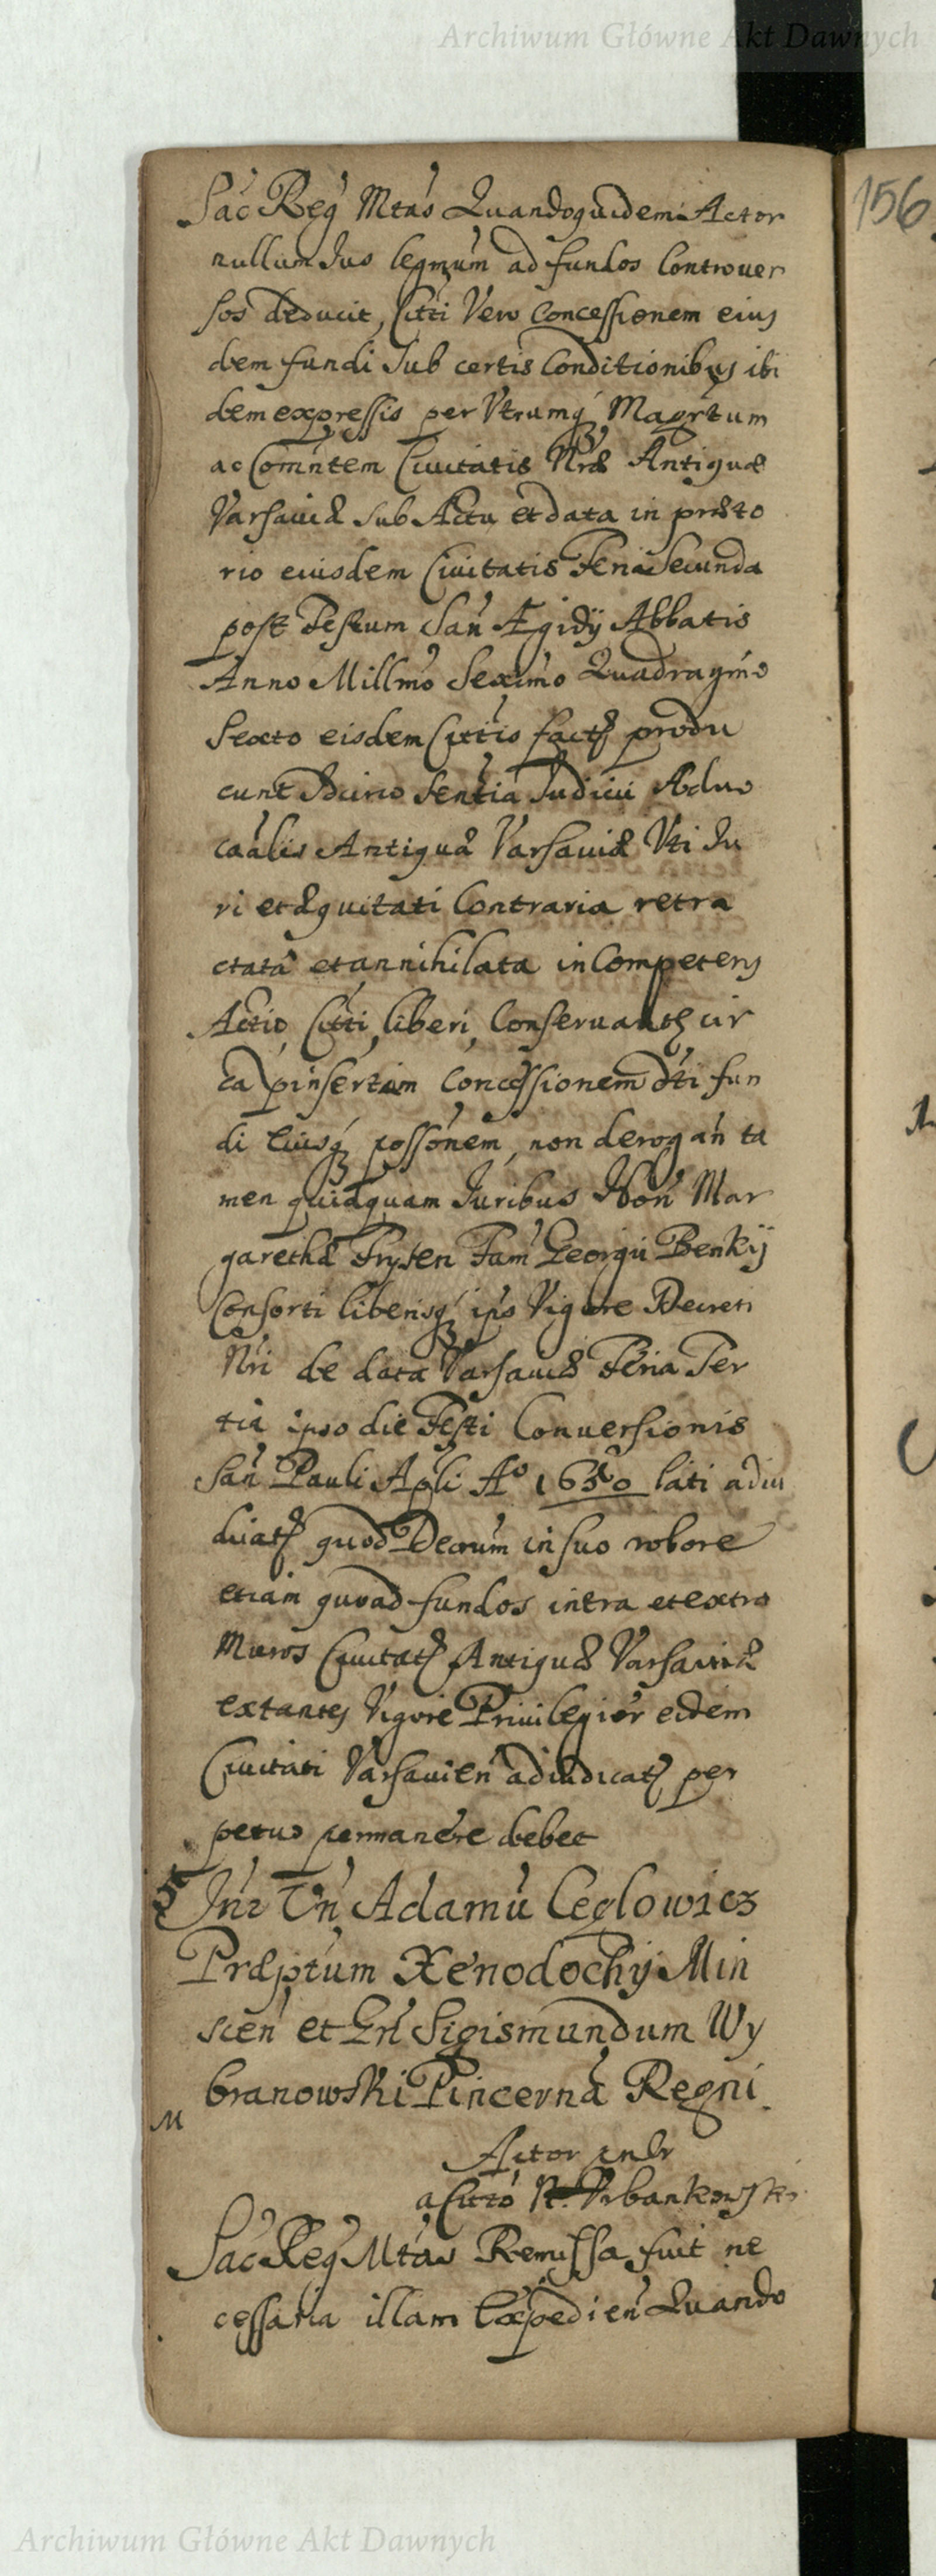 Archiwum Główne Akt Dawnych
156
Sac Reg Mtas Quandoquidem Actor
nullum Jus legmum ad fundos Controver
sos deducit, Citti Vero Concessionem eius
dem fundi Sub certis Conditionibus ibi
dem expressis per Vtrumq Magrtum
ac Comntem Civitatis Nræ Antiquæ
Varsaviæ sub Actu et data in præto
rio eiusdem Civitatis Feria Secunda
post Festum San Ægidij Abbatis
Anno Millmo Sexmo Quadragmo
Sexto eisdem Cittis factæ produ
cunt Sentia Judicii Advo
caalis Antiquæ Varsaviæ Vti Ju
ri et æquitati Contraria retra
ctata et annihilata in Competens
Actio Citti liberi Conservantes cir
ca pinsertam Concessionem dti fun
di eiusq possonem, non derogan ta
men quidquam Juribus Hon Mar
garethæ Fryten Fam Georgii Benkij
Consorti liberisq ips Vigore Decreti
Nri de data Varsaviæ Feria Ter
tia ipso die Festi Conversionis
San Pauli Apli Aº 1650 lati adiu
dicatis quod Decrum in suo robore
etiam quoad fundos intra et extra
Muros Civitatis Antiquæ Varsaviæ
extantes Vigore Privilegior eidem
Civitati Varsavien adiudicatis per
petuo permanere debet
Intr Vn Adamu Ceglowicz
Præptum Xenodochij Min
scen et Gn Sigismundum Wy
branowski Pincerna Regni
M
Actor
a Citto Vrbankowski
Sac Reg Mtas Remissa fuit ne
cessaria illam Expedien Quando
Archiwum Główne Akt Dawnych